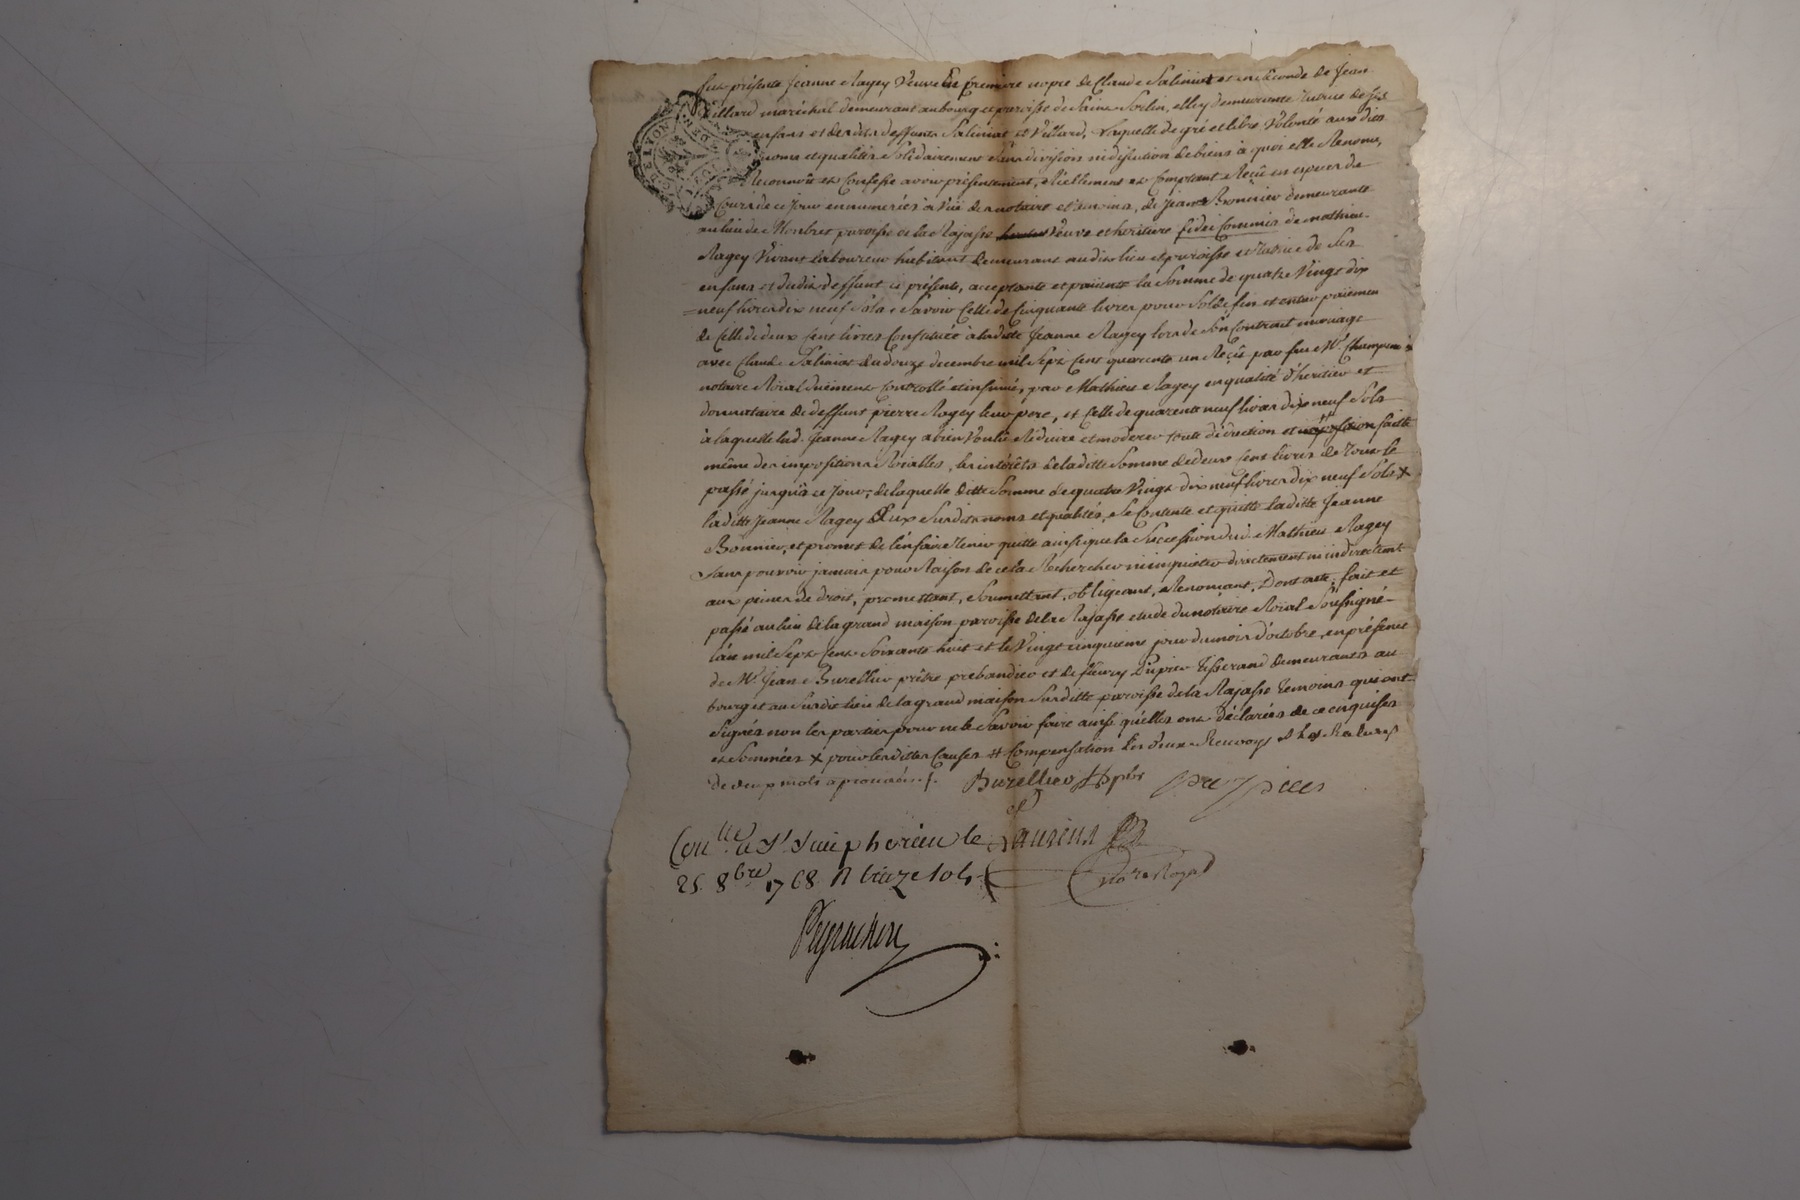 fut présente Jeanne Ragey Veuve en première nopce de Claude Saliniat et en Seconde de Jean
Villard maréchal demeurant au bourg et paroisse de Saint Sorlin, elle y demeurante Tutrice de ses
enfans et desdits deffunts Saliniat et Villard, Laquelle de gré et libre Volonté aux dits
noms et qualités Solidairement sans division ni discution de biens à quoi elle Renonce,
Reconnoit et Confesse avoir présentement, Réellement et Comptant Reçû en espèces de
Cours de ce Jour en numeriés à Vüe de notaire et témoins, de Jeanne Bonnier demeurante
au lieu de paroisse de la Rajasse Veuve et heritiere fidei Commis de mathieu
Ragey Vivant Laboureur habitant demeurant audit lieu et paroisse et Tutrice de Ses
enfans et dudit deffunt ici présente, acceptante et paiante la Somme de quatre Vingt dix
neuf livres dix neuf Sols, Savoir Celle de Cinquante livres pour Solde fin et entier paiement
de Celle de deux Cent livres Constituée à laditte Jeanne Ragey lors de Son Contrat mariage
avec Claude Saliniat du douze decembre mil Sept Cent quarante un Reçû par feu Me.
notaire Roial duëment Controllé et insinué, par Mathieu Ragey en qualité d'heritier et
donnataire de deffunt pierre Ragey leur pere, et Celle de quarante neuf livres dix neuf Sols
à laquelle lad. Jeanne Ragey a bien Voulû Réduire et moderer toute déduction et faitte
même des impositions Roialles, les intérêts de laditte Somme de deux Cent livres de Tout le
passé jusqu'à ce Jour; de laquelle ditte Somme de quatre Vingt dix neuf livres dix neuf Sols X
laditte Jeanne Ragey aux Susdits noms et qualités, Se Contente et quitte laditte Jeanne
Bonnier, et promet de l'en faire Tenir quitte ainsi que la Succession dud. Mathieu Ragey
Sans pouvoir jamais pour Raison de ce la Rechercher ni inquieter directement ni indirectement
aux peines de droit, promettant, Soumettant, obligeant, Renonçant, Dont acte; fait et
passé au lieu de la grand maison paroisse de la Rajasse etude du notaire Roial Soussigné
l'an mil Sept Cent Soixante huit et le Vingt cinquieme jour du mois d'octobre, en présence
de Mr. Jean Burellier prêtre prebandier et de fleury Dupré Tisserand demeurants au
bourg et au Susdit lieu de la grand maison Susditte paroisse de la Rajasse Temoins qui ont
Signés non les parties pour ne le Savoir faire ainsi qu'elles ont déclarées de ce enquises
et Sommées X pour les dittes Causes # Compensation les deux Renvoys et les Ratures
de deux mots approuvés ./.
Burellier
Laurens
Conllé à St Simphorien le
25 8bre 1768 R treize sols
Nore Royal